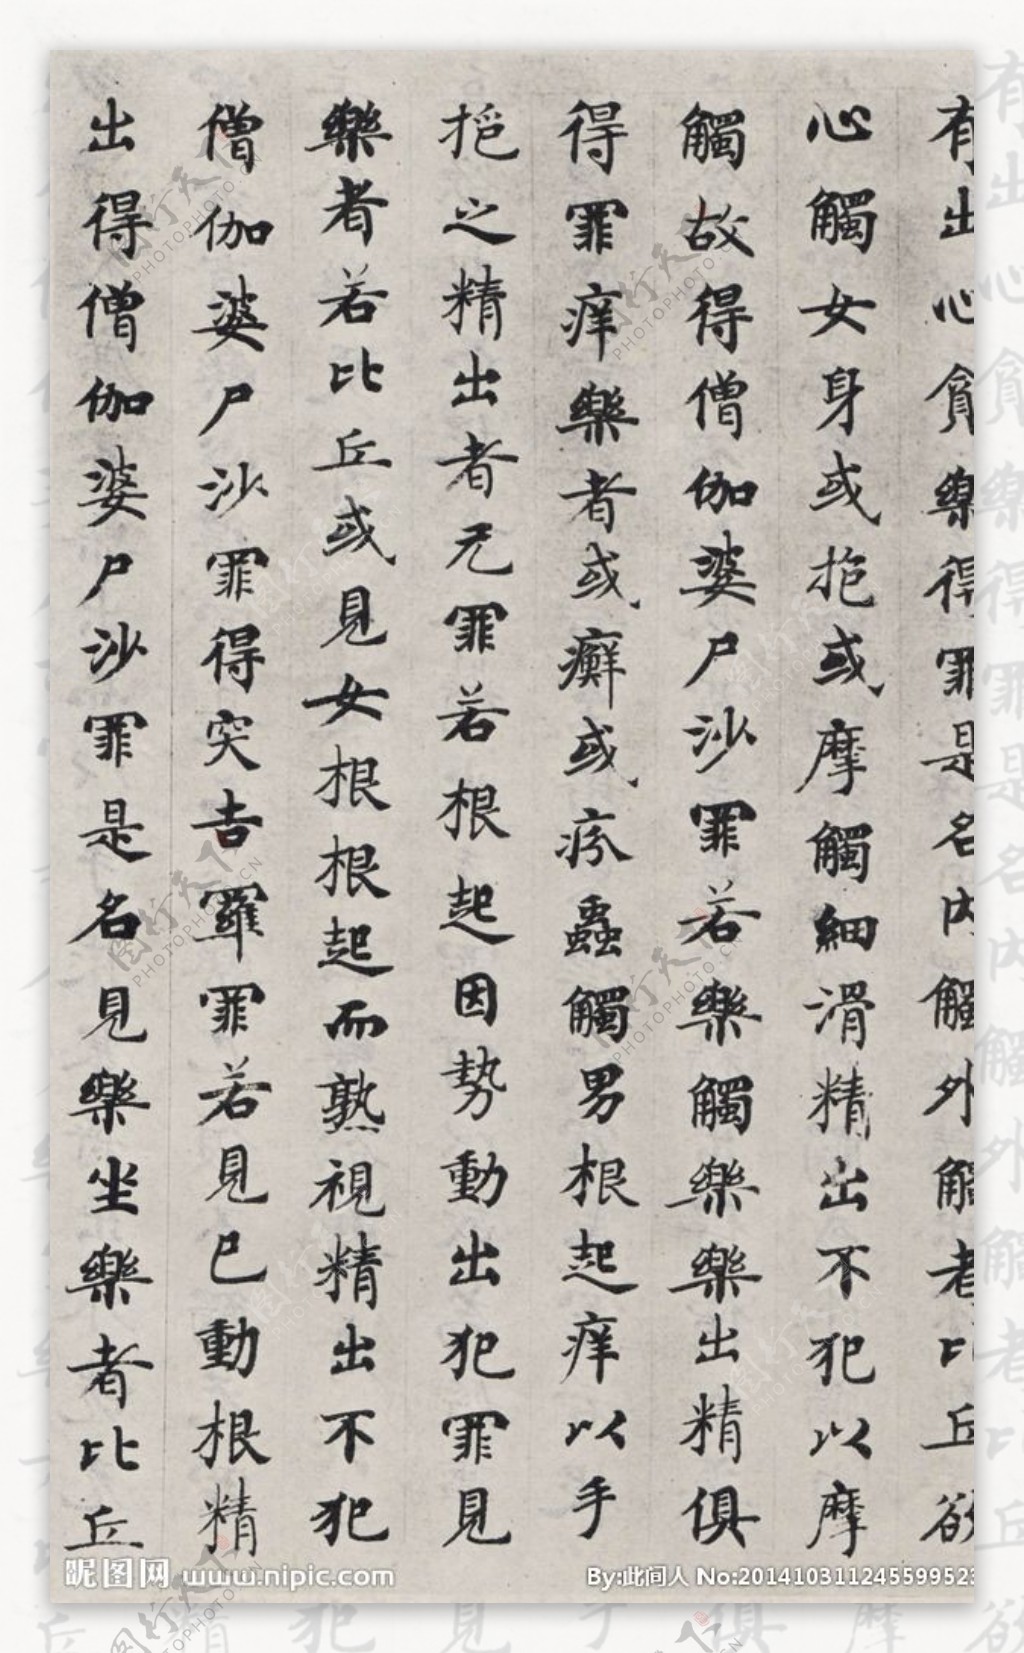 有出心貪樂得罪是名内觸外觸者比丘欲
心觸女身或抱或摩觸細滑精出不犯以摩
觸故得僧伽婆尸沙罪若樂觸樂樂出精俱
得罪痒樂者或癬或疥蟲觸男根起痒以手
挹之精出者无罪若根起因势動出犯罪見
樂者若比丘或見女根根起而熟視精出不犯
僧伽婆尸沙罪得突吉羅罪若見已動根精
出得僧伽婆尸沙罪是名見樂坐樂者比丘
昵图网 www.nipic.com
By:此间人 No:20141031124559952